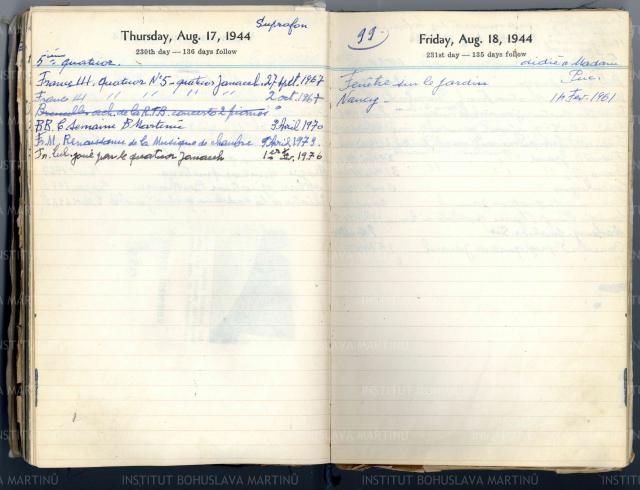 Suprafon
Thursday, Aug. 17, 1944
230th day — 136 days follow
5ième quatuor.
France III. quatuor No 5 - quatuor Janacek. 27 sept. 1967
France III " " " " 2 oct. 1967
Bruxelles orch. de la R.T.B. concerto 2 pianos "
BB C Semaine B Martinu 3 Avril 1970
Fr. M. Renaissance de la Musique de chambre 9 Avril 1973.
Fr. Cul. joué par le quatuor Janacek 1er Fev. 1976
99.
Friday, Aug. 18, 1944
231st day — 135 days follow
dédié à Madame
Fenêtre sur le jardin
Nancy — 14 Fev. 1961
INSTITUT BOHUSLAVA MARTINŮ